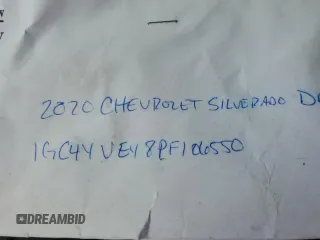 2020 CHEVROLET SILVERADO D
1GC4YVEY8PF106550
DREAMBID